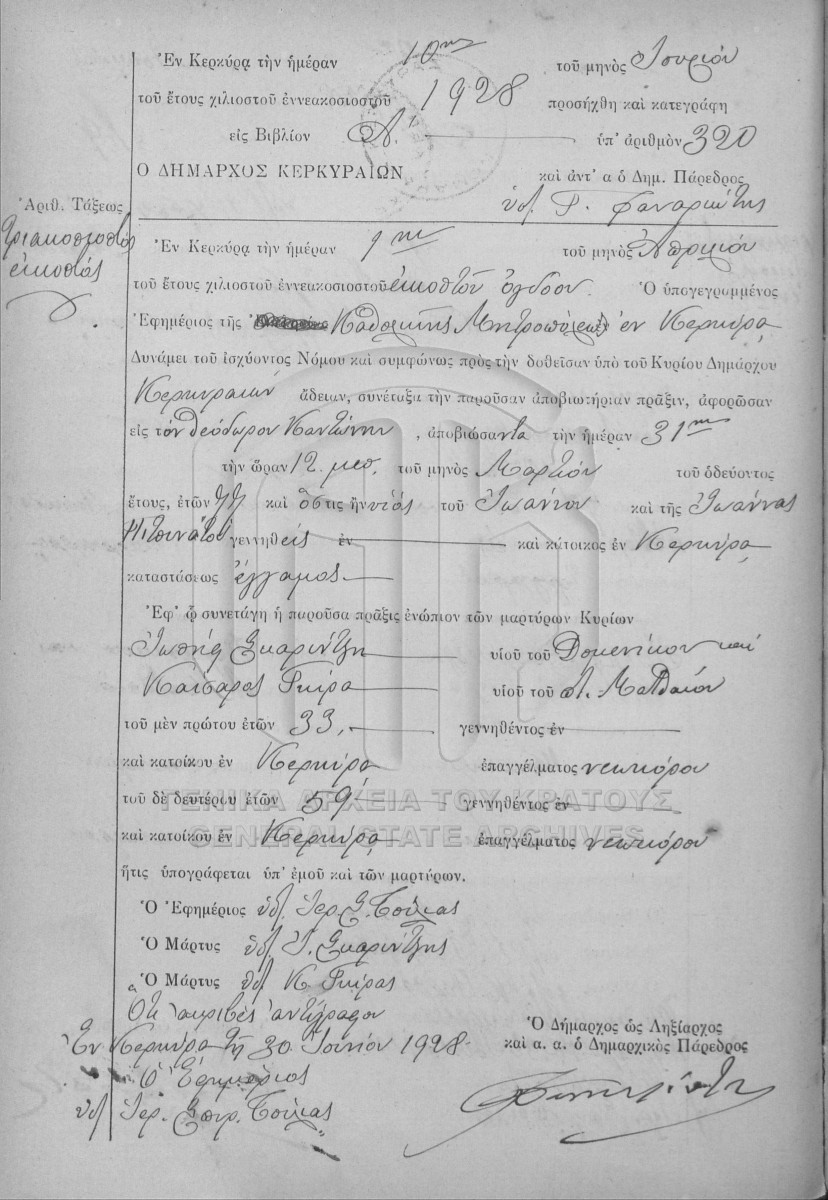 Ἐν Κερκύρᾳ τὴν ἡμέραν 10ην τοῦ μηνὸς
τοῦ ἔτους χιλιοστοῦ ἐννεακοσιοστοῦ 1928 προσήχθη καὶ κατεγράφη
εἰς Βιβλίον Α' ὑπ' ἀριθμὸν 320
Ο ΔΗΜΑΡΧΟΣ ΚΕΡΚΥΡΑΙΩΝ καὶ ἀντ' α ὁ Δημ. Πάρεδρος
ὑπ. Φαναριώτης
Ἀριθ. Τάξεως
τριακοσιοστὸς
εἰκοστός
Ἐν Κερκύρᾳ τὴν ἡμέραν 1ην τοῦ μηνὸς Ἀπριλίου
τοῦ ἔτους χιλιοστοῦ ἐννεακοσιοστοῦ εἰκοστοῦ ὀγδόου Ὁ ὑπογεγραμμένος
Ἐφημέριος τῆς Καθολικῆς Μητροπόλεως ἐν Κερκύρᾳ
Δυνάμει τοῦ ἰσχύοντος Νόμου καὶ συμφώνως πρὸς τὴν δοθεῖσαν ὑπὸ τοῦ Κυρίου Δημάρχου
Κερκυραίων ἄδειαν, συνέταξα τὴν παροῦσαν ἀποβιωτήριαν πρᾶξιν, ἀφορῶσαν
εἰς τὸν Θεόδωρον Καντώνην, ἀποβιώσαντα τὴν ἡμέραν 31ην
τὴν ὥραν 12 μεσ. τοῦ μηνὸς Μαρτίου τοῦ ὁδεύοντος
ἔτους, ἐτῶν 77 καὶ ὅστις ἦν υἱὸς τοῦ Ἰωάννου καὶ τῆς Ἰωάννας
γεννηθεὶς ἐν καὶ κάτοικος ἐν Κερκύρᾳ
καταστάσεως ἔγγαμος
Ἐφ' ᾧ συνετάγη ἡ παροῦσα πρᾶξις ἐνώπιον τῶν μαρτύρων Κυρίων
Ἰωσὴφ Σκαρίντζη υἱοῦ τοῦ Δομενίκου καὶ
Καίσαρος Γκίρα υἱοῦ τοῦ Ματθαίου
τοῦ μὲν πρώτου ἐτῶν 33, γεννηθέντος ἐν
καὶ κατοίκου ἐν Κερκύρᾳ ἐπαγγέλματος νεωκόρου
τοῦ δὲ δευτέρου ἐτῶν 59 γεννηθέντος ἐν
καὶ κατοίκου ἐν Κερκύρᾳ ἐπαγγέλματος νεωκόρου
ΓΕΝΙΚΑ ΑΡΧΕΙΑ ΤΟΥ ΚΡΑΤΟΥΣ
GENERAL STATE ARCHIVES
ἥτις ὑπογράφεται ὑπ' ἐμοῦ καὶ τῶν μαρτύρων.
Ὁ Ἐφημέριος ὑπ. Ἱερ. Σ. Βούλας
Ὁ Μάρτυς ὑπ. Ι. Σκαρίντζης
Ὁ Μάρτυς ὑπ. Κ. Γκίρας
Ὅτι ἀκριβὲς ἀντίγραφον
Ἐν Κερκύρᾳ τῇ 30 Ἰουνίου 1928
Ὁ Ἐφημέριος
ὑπ. Ἱερ. Σπυρ. Βούλας
Ὁ Δήμαρχος ὡς Ληξίαρχος
καὶ α. α. ὁ Δημαρχικὸς Πάρεδρος